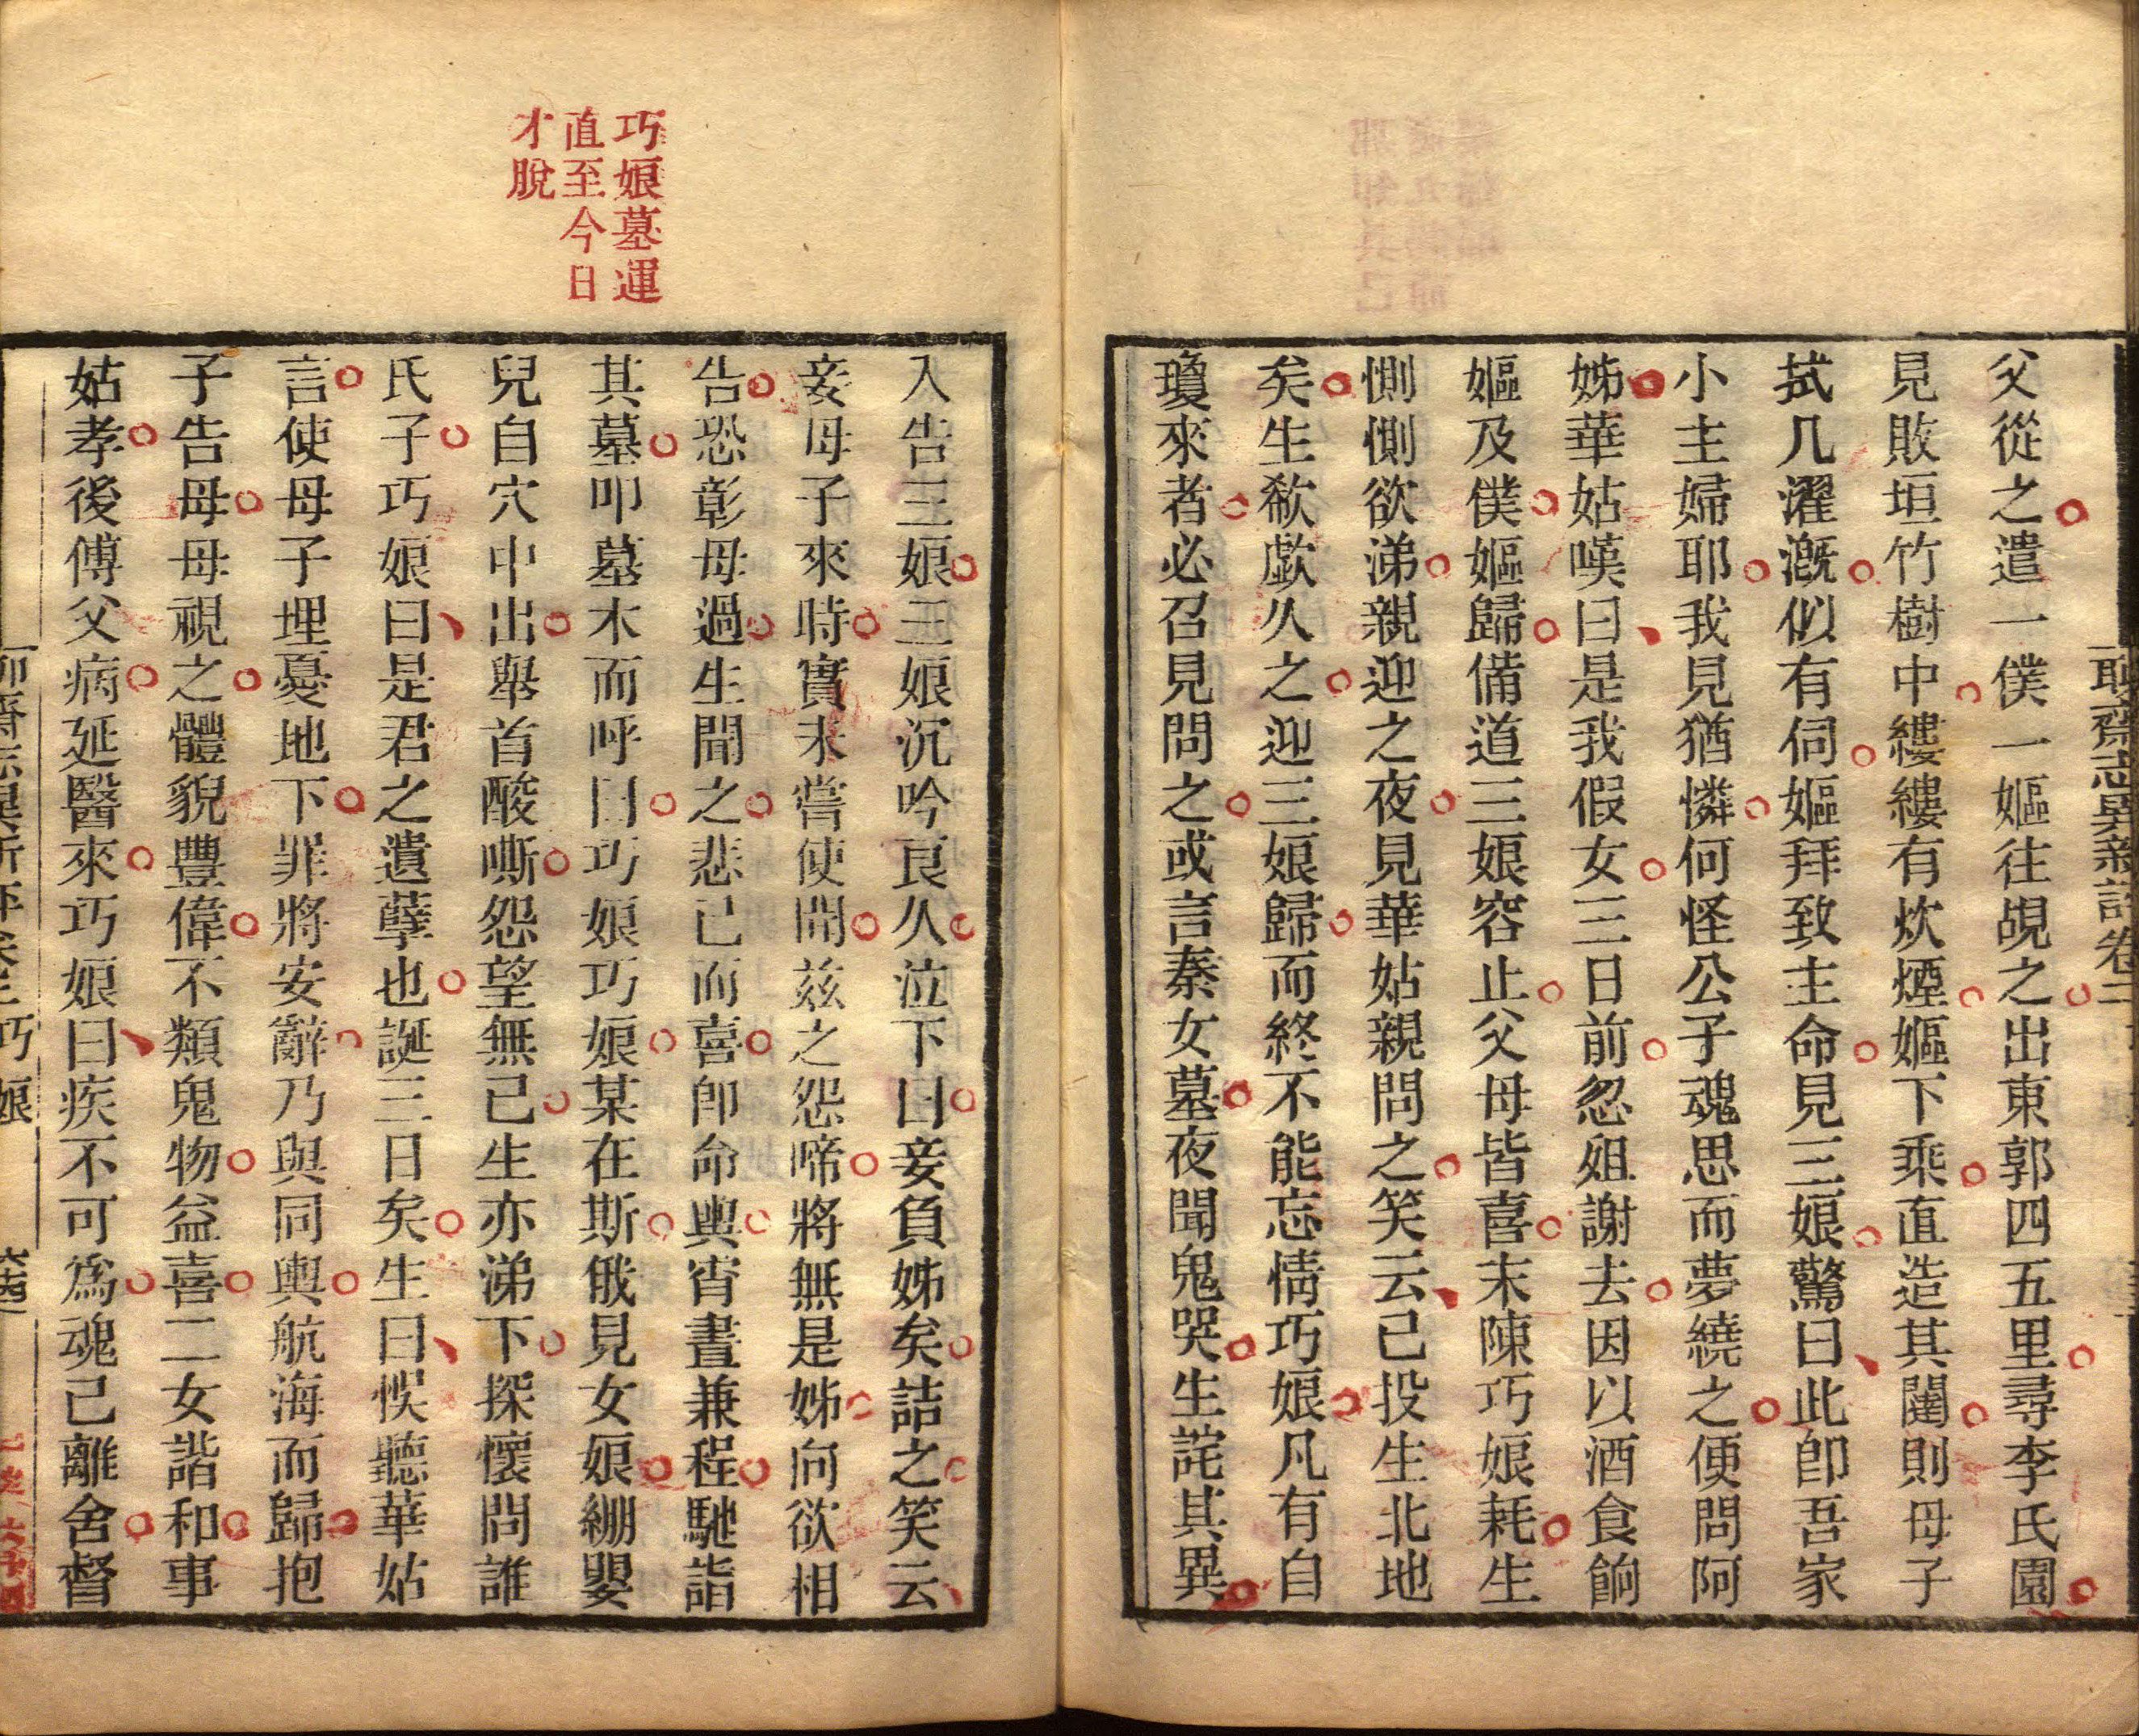 聊齋志異新評卷三
父從之遣一僕一嫗往覘之出東郭四五里尋李氏園
見敗垣竹樹中縷縷有炊煙嫗下乘直造其闥則母子
拭几濯溉似有伺嫗拜致主命見三娘驚曰此卽吾家
小主婦耶我見猶憐何怪公子魂思而夢繞之便問阿
姊華姑嘆曰是我假女三日前忽殂謝去因以酒食餉
嫗及僕嫗歸備道三娘容止父母皆喜末陳巧娘耗生
惻惻欲涕親迎之夜見華姑親問之笑云已投生北地
矣生欷歔久之迎三娘歸而終不能忘情巧娘凡有自
瓊來者必召見問之或言秦女墓夜聞鬼哭生詫其異
巧娘墓運
直至今日
才脫
入告三娘三娘沉吟良久泣下曰妾負姊矣詰之笑云
妾母子來時實未嘗使聞茲之怨啼將無是姊向欲相
告恐彰母過生聞之悲已而喜卽命輿宵晝兼程馳詣
其墓叩墓木而呼曰巧娘巧娘某在斯俄見女娘繃嬰
兒自穴中出舉首酸嘶怨望無已生亦涕下探懷問誰
氏子巧娘曰是君之遺孽也誕三日矣生曰悞聽華姑
言使母子埋憂地下罪將安辭乃與同輿航海而歸抱
子告母母視之體貌豐偉不類鬼物益喜二女諧和事
姑孝後傅父病延醫來巧娘曰疾不可爲魂已離舍督
聊齋志異新評卷三 巧娘